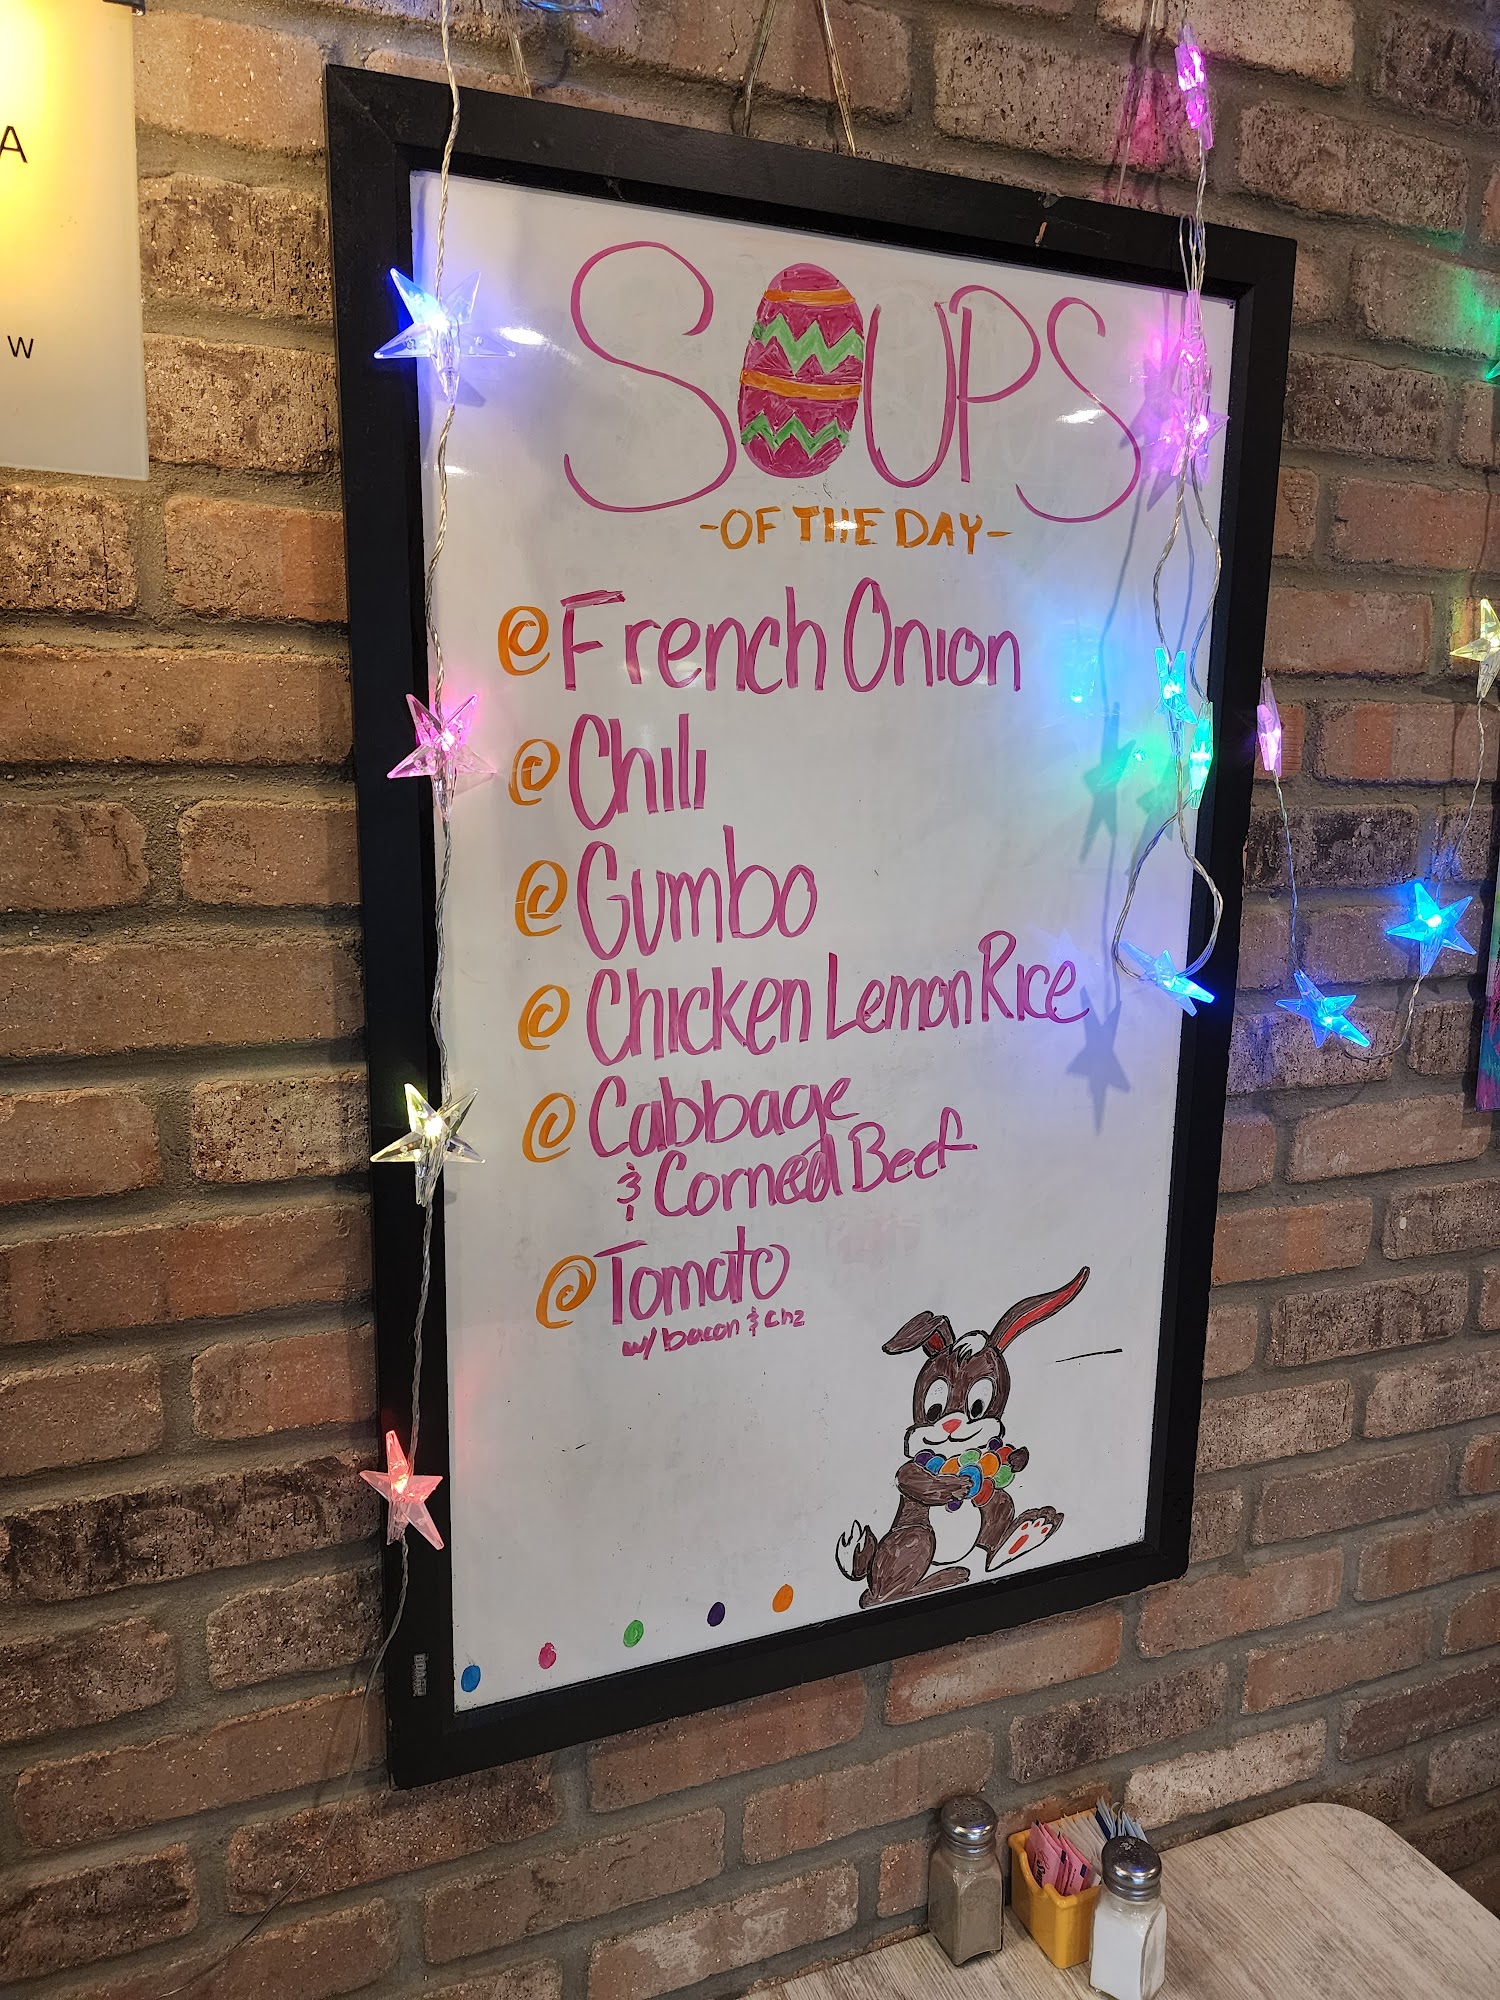 A
W
SOUPS
-OF THE DAY-
@ French Onion
@ Chili
@ Gumbo
@ Chicken Lemon Rice
@ Cabbage
& Corned Beef
@ Tomato
w/ bacon & chz